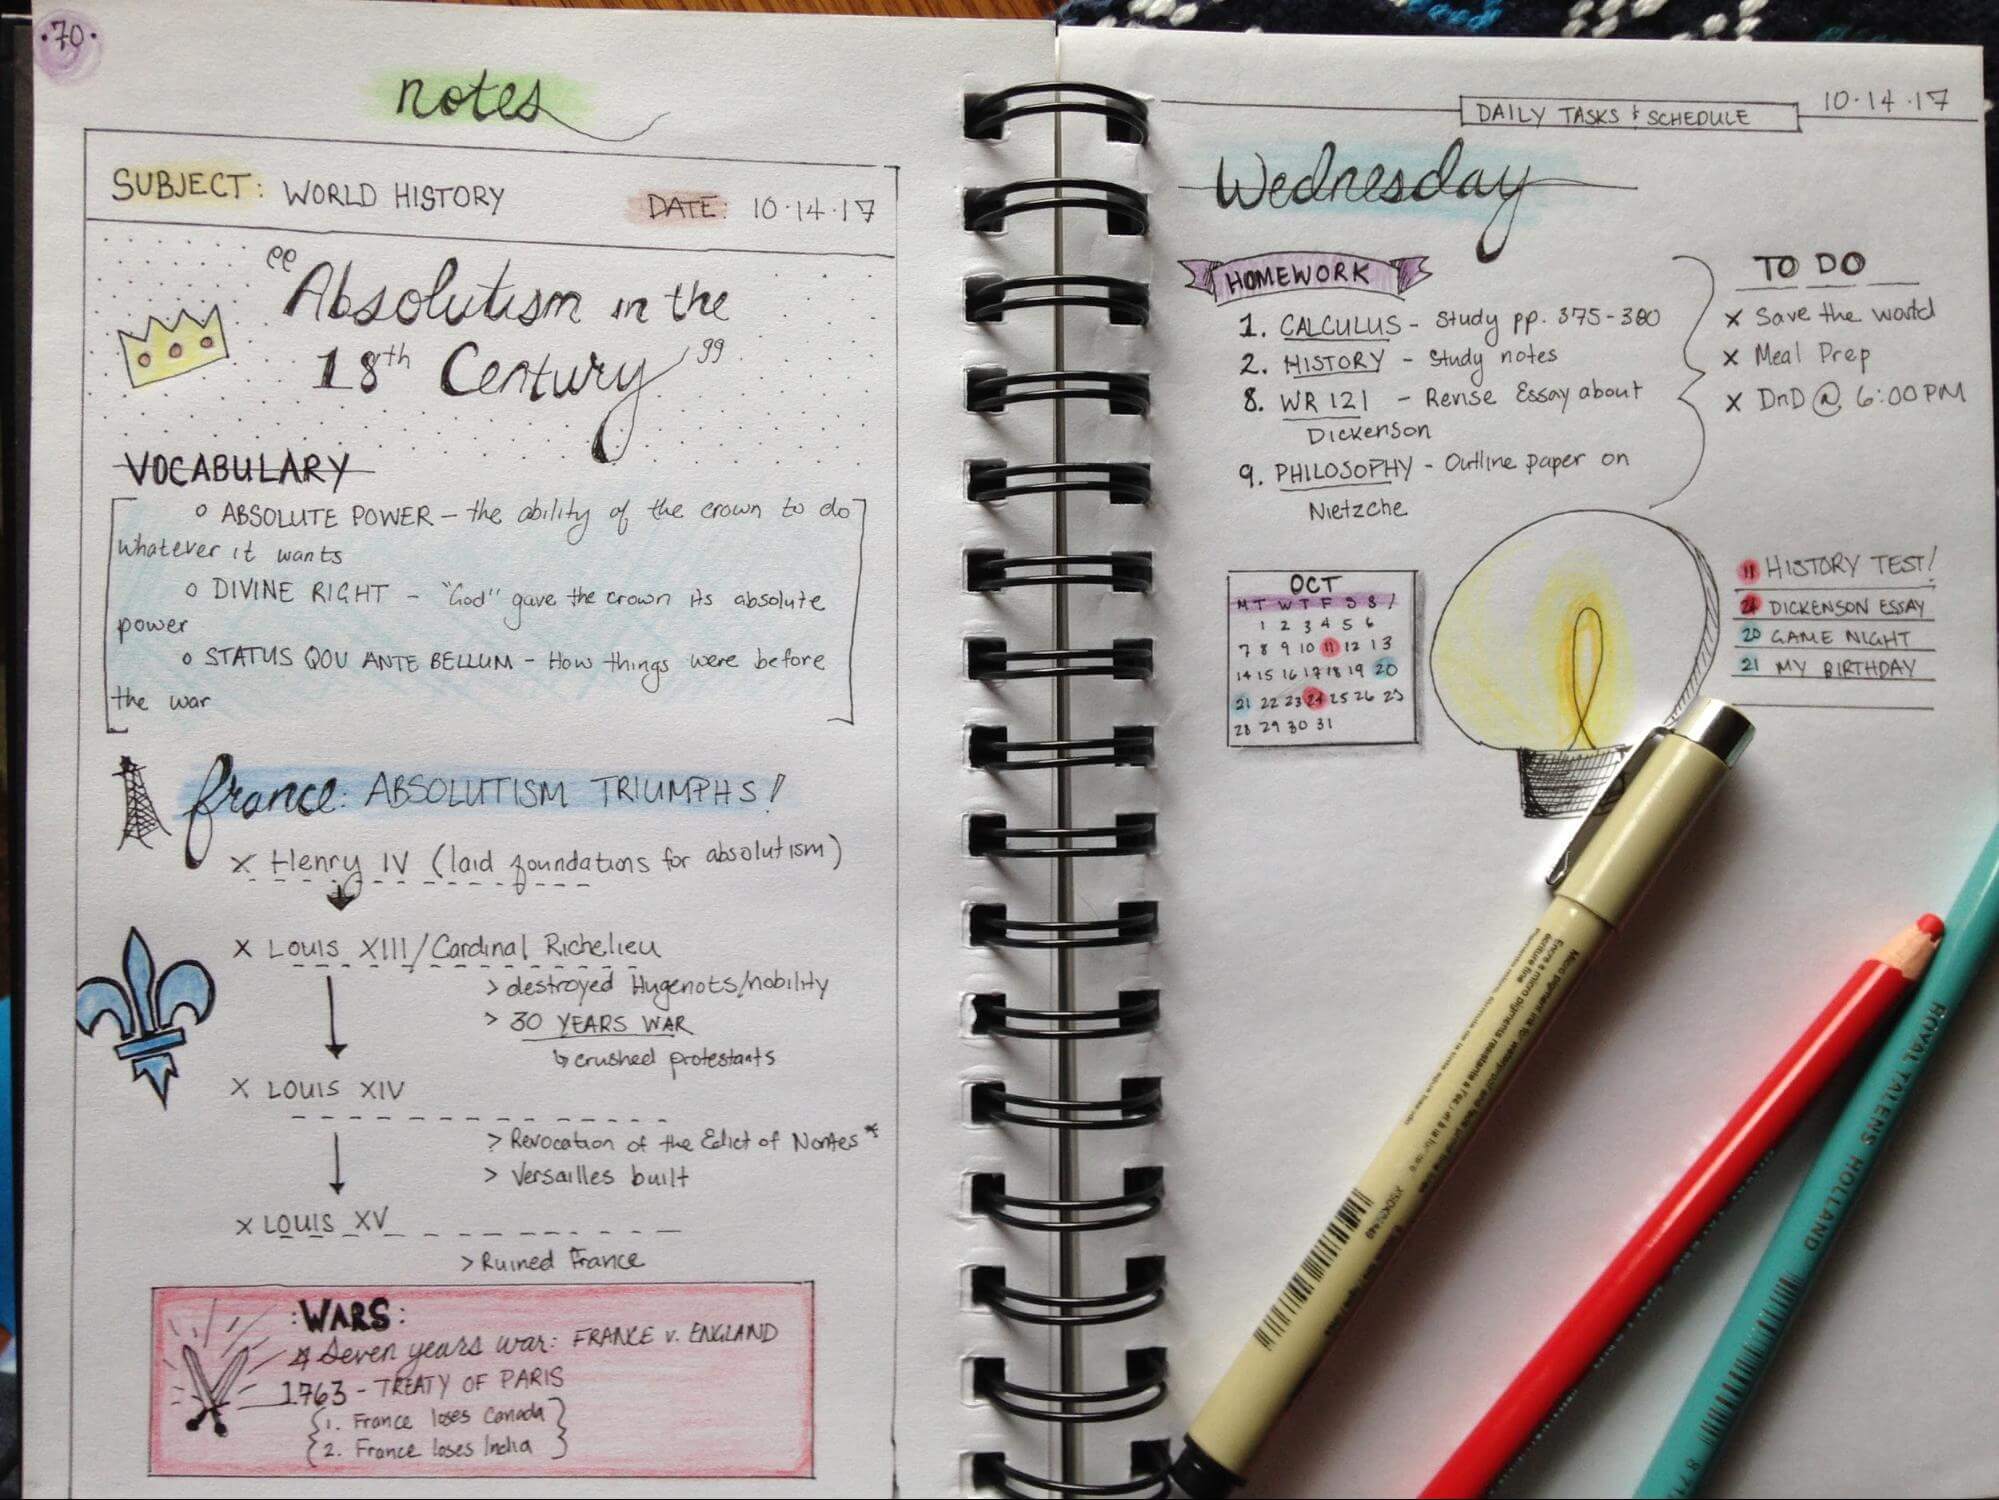 ·70·
notes
SUBJECT: WORLD HISTORY
DATE: 10·14·17
"Absolutism in the
18th Century"
VOCABULARY
o ABSOLUTE POWER - the ability of the crown to do
whatever it wants
o DIVINE RIGHT - "God" gave the crown its absolute
power
o STATUS QOU ANTE BELLUM - How things were before
the war
france: ABSOLUTISM TRIUMPHS!
x Henry IV (laid foundations for absolutism)
x Louis XIII/Cardinal Richelieu
> destroyed Hugenots/nobility
> 30 YEARS WAR
↳ crushed protestants
x LOUIS XIV
> Revocation of the Edict of Nantes*
> Versailles built
x LOUIS XV
> Ruined France
:WARS:
Seven years war: FRANCE v. ENGLAND
1763 - TREATY OF PARIS
{1. France loses Canada}
{2. France loses India}
DAILY TASKS & SCHEDULE
10·14·17
Wednesday
HOMEWORK
1. CALCULUS - Study pp. 375-380
2. HISTORY - Study notes
8. WR 121 - Revise Essay about
Dickenson
9. PHILOSOPHY - Outline paper on
Nietzche
TO DO
x Save the world
x Meal Prep
x DnD @ 6:00PM
OCT
M T W T F S S /
1 2 3 4 5 6
7 8 9 10 11 12 13
14 15 16 17 18 19 20
21 22 23 24 25 26 23
28 29 30 31
11 HISTORY TEST!
24 DICKENSON ESSAY
20 GAME NIGHT
21 MY BIRTHDAY
ROYAL TALENS HOLLAND